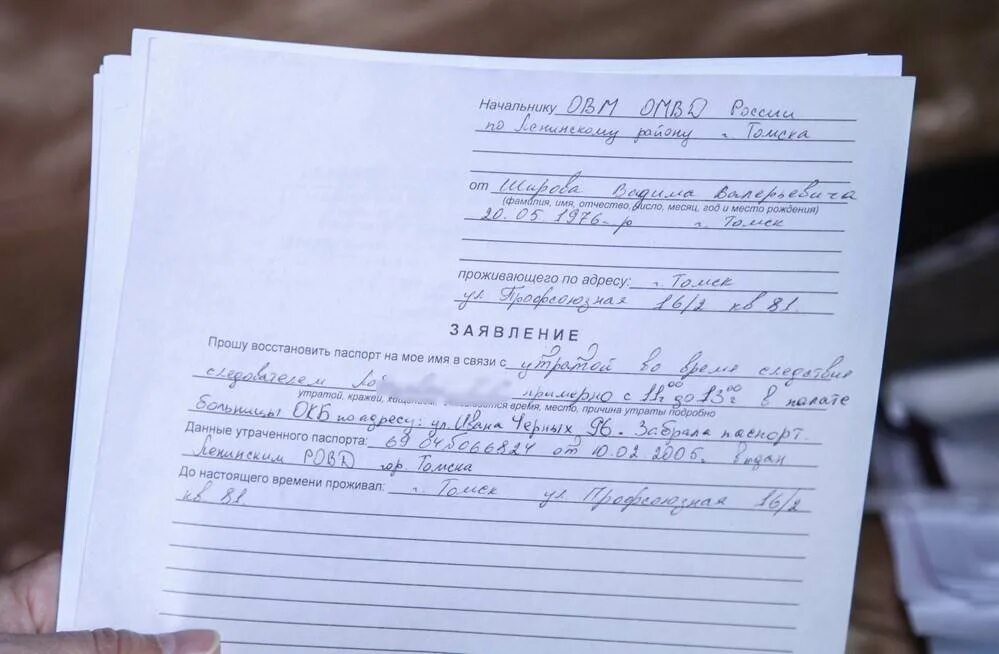 Начальнику ОВМ ОМВД России
по Ленинскому району г. Томска
от Широва Вадима Валерьевича
(фамилия, имя, отчество, число, месяц, год и место рождения)
20.05.1976 г.р г. Томск
проживающего по адресу: г. Томск
ул. Профсоюзная 16/2 кв 81.
ЗАЯВЛЕНИЕ
Прошу восстановить паспорт на мое имя в связи с утратой во время следствие
следователем примерно с 11:00 до 13:00 в палате
утратой, кражей, время, место, причина утраты подробно
больницы ОКБ по адресу: ул. Ивана Черных 96. Забрала паспорт.
Данные утраченного паспорта: 69 04 5066824 от 10.02.2005г. выдан
Ленинским РОВД гор. Томска
До настоящего времени проживал: г. Томск ул. Профсоюзная 16/2
кв 81.